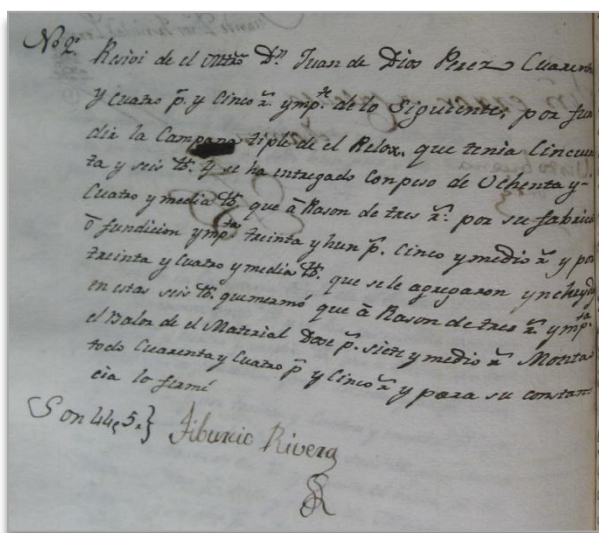 No. 2.
Resivi de el Mtro. Dn. Juan de Dios Perez Cuarenta
y Cuatro p.s y Cinco r.s ymp.te de lo Siguiente, por fun
dir la Campana tiple de el Relox, que tenia Cincuen
ta y seis lb. y se ha entregado Con peso de Ochenta y-
Cuatro y media lb. que â Rason de tres r.s por su fabrica
ô fundicion ymp.ta treinta y hun p.s Cinco y medio r.s y por
treinta y Cuatro y media lb. que se le agregaron yncluydo
en estas seis lb. que mermó que â Rason de tres r.s ymp.ta
el Balor de el Material Dose p.s siete y medio r.s Monta
todo Cuarenta y Cuatro p.s y Cinco r.s y para su constan
cia lo firmé
Son 44,, 5. } Tiburcio Rivera